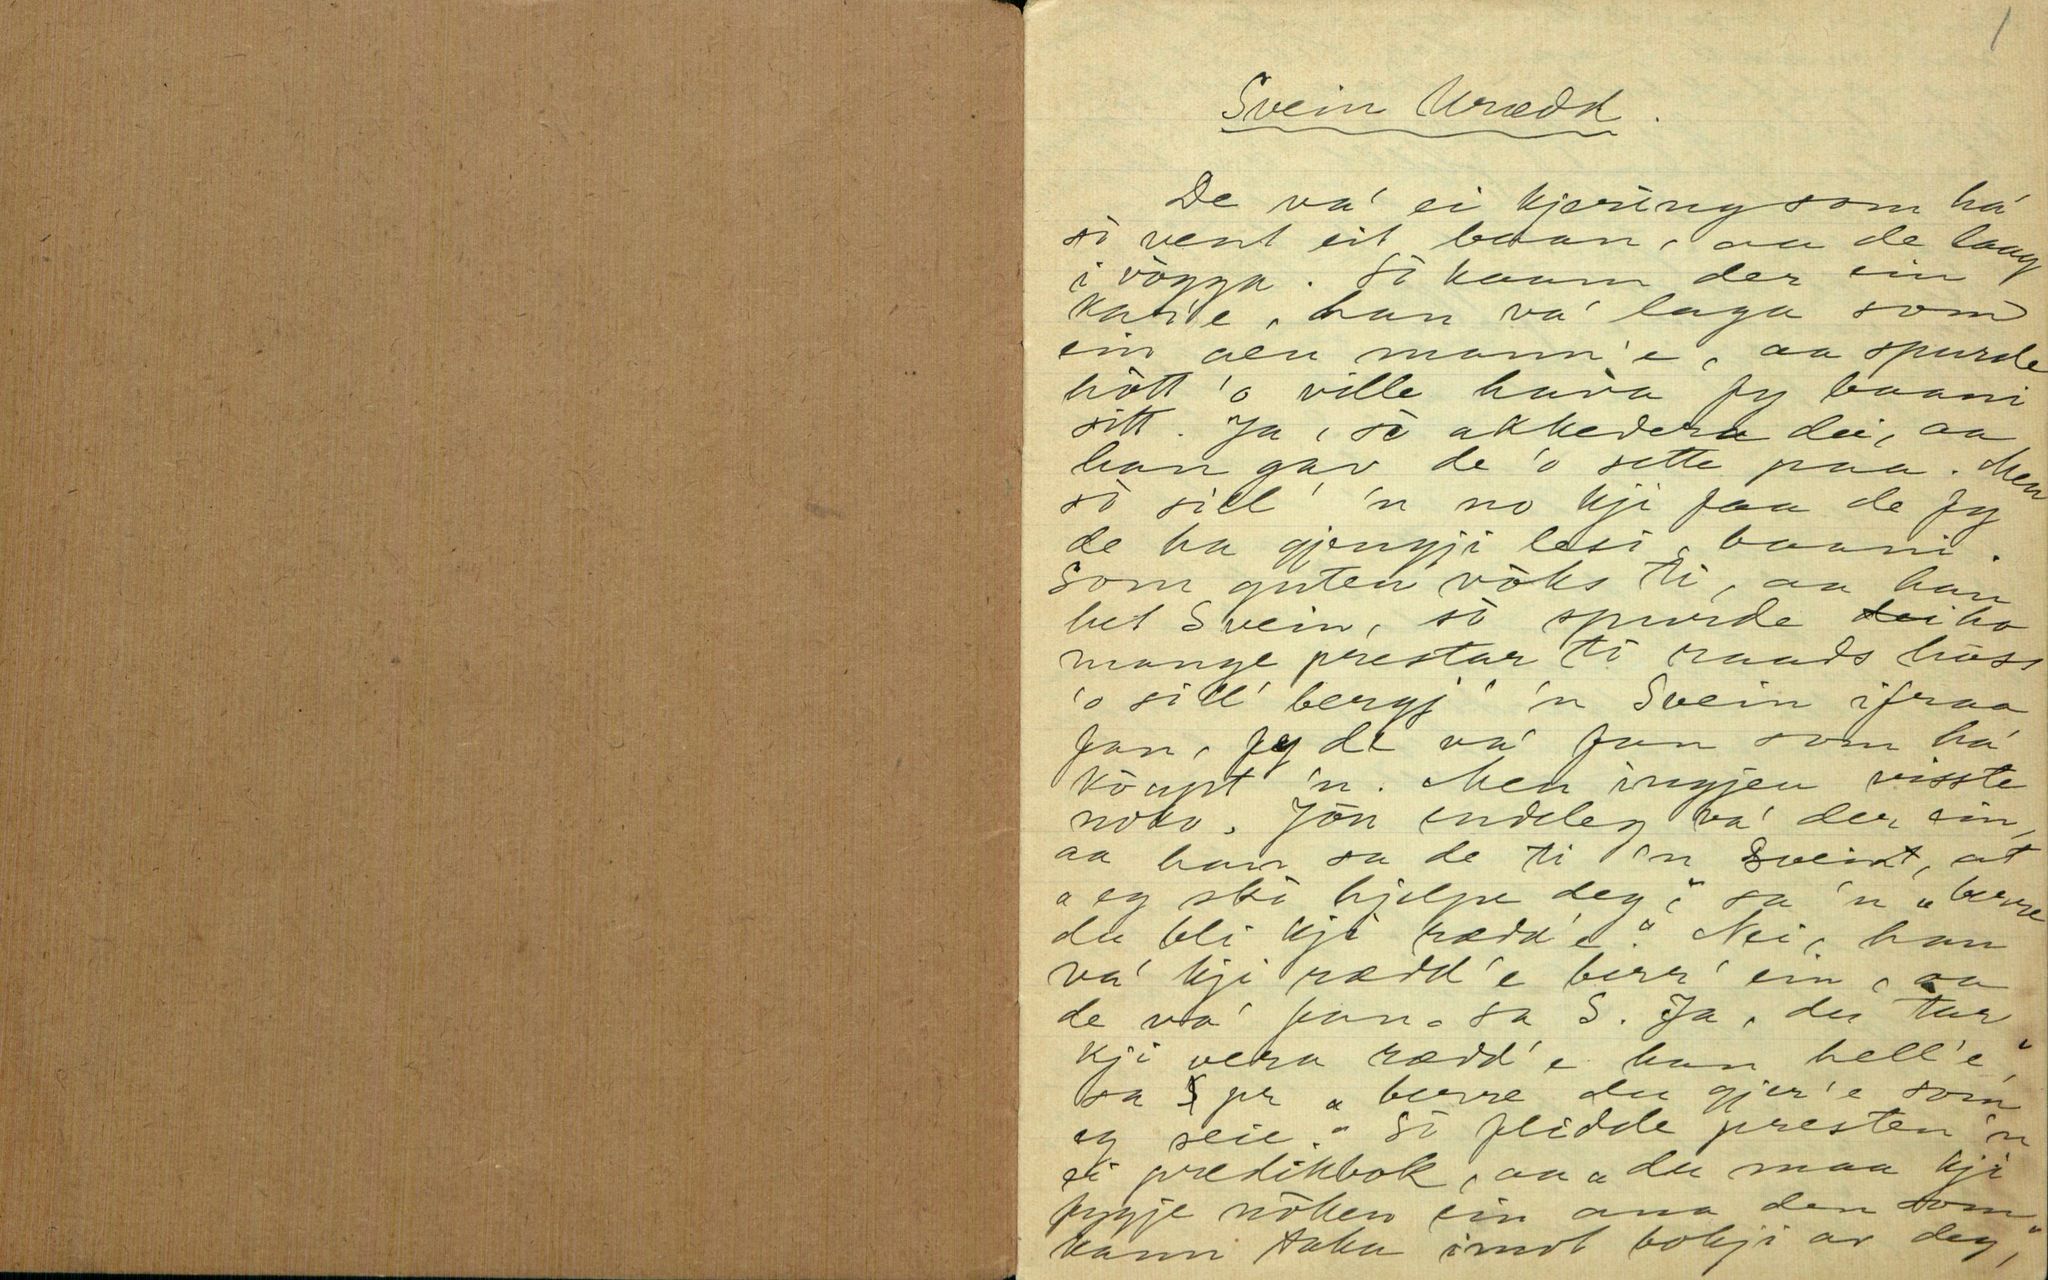 1
Svein Urædd.
De va' ei kjering som há
sò vent eit baan, aa de laag
i vògga. Sò kaam der ein
kar'e, han va' laga som
ein aen mann'e, aa spurde
hòtt 'o ville hava fy baani
sitt. Ja, sò akkedera dei, aa
han gav de 'o sette paa. Men
sò sill' 'n no kji faa de fy
de ha gjengji lesi, baani.
Som guten vòks ti, aa han
het Svein, sò spurde dei ho
mange prestar ti raads hòss
'o sill' bergj' 'n Svein ifraa
fan, fy de va' fan som há
kòupt 'n. Men ingjen visste
noko. Jòn endeleg va' der ein,
aa han sa de ti 'n Svein, at
"eg skò hjelpe deg," sa 'n "berre
du bli kji rædd'e." Nei, han
va' kji rædd'e berr' ein, aa
de va' fan. sa S. Ja, du tar
kji vera rædd'e han hell'e,"
sa pr "berre du gjer'e som
eg seie." Sò flidde presten 'n
ei prædikbok, aa "du maa kji
fygje nòken ein ana den som
kann taka imot bokji av deg,"